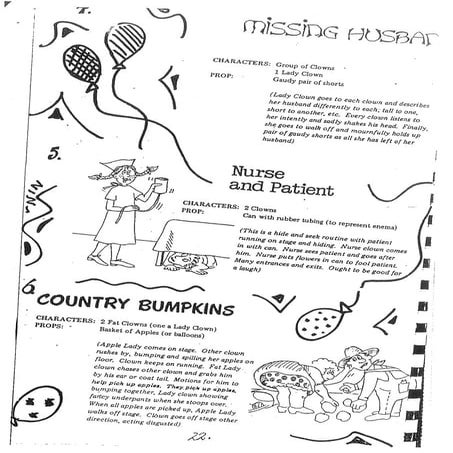 MISSING HUSBAN
CHARACTERS: Group of Clowns
1 Lady Clown
PROP: Gaudy pair of shorts
(Lady Clown goes to each clown and describes
her husband differently to each; tall to one,
short to another, etc. Every clown listens to
her intently and sadly shakes his head. Finally,
she goes to walk off and mournfully holds up
pair of gaudy shorts as all she has left of her
husband)
5.
Nurse
and Patient
CHARACTERS: 2 Clowns
PROP: Can with rubber tubing (to represent enema)
(This is a hide and seek routine with patient
running on stage and hiding. Nurse clown comes
in with can. Nurse sees patient and goes after
him. Nurse puts flowers in can to fool patient.
Many entrances and exits. Ought to be good for
a laugh)
6.
COUNTRY BUMPKINS
CHARACTERS: 2 Fat Clowns (one a Lady Clown)
PROPS: Basket of Apples (or balloons)
(Apple Lady comes on stage. Other clown
rushes by, bumping and spilling her apples on
floor. Clown keeps on running. Fat Lady
clown chases other clown and grabs him
by his ear or coat tail. Motions for him to
help pick up apples. They pick up apples,
bumping together, Lady clown showing
fancy underpants when she stoops over.
When all apples are picked up, Apple Lady
walks off stage. Clown goes off stage other
direction, acting disgusted)
22.